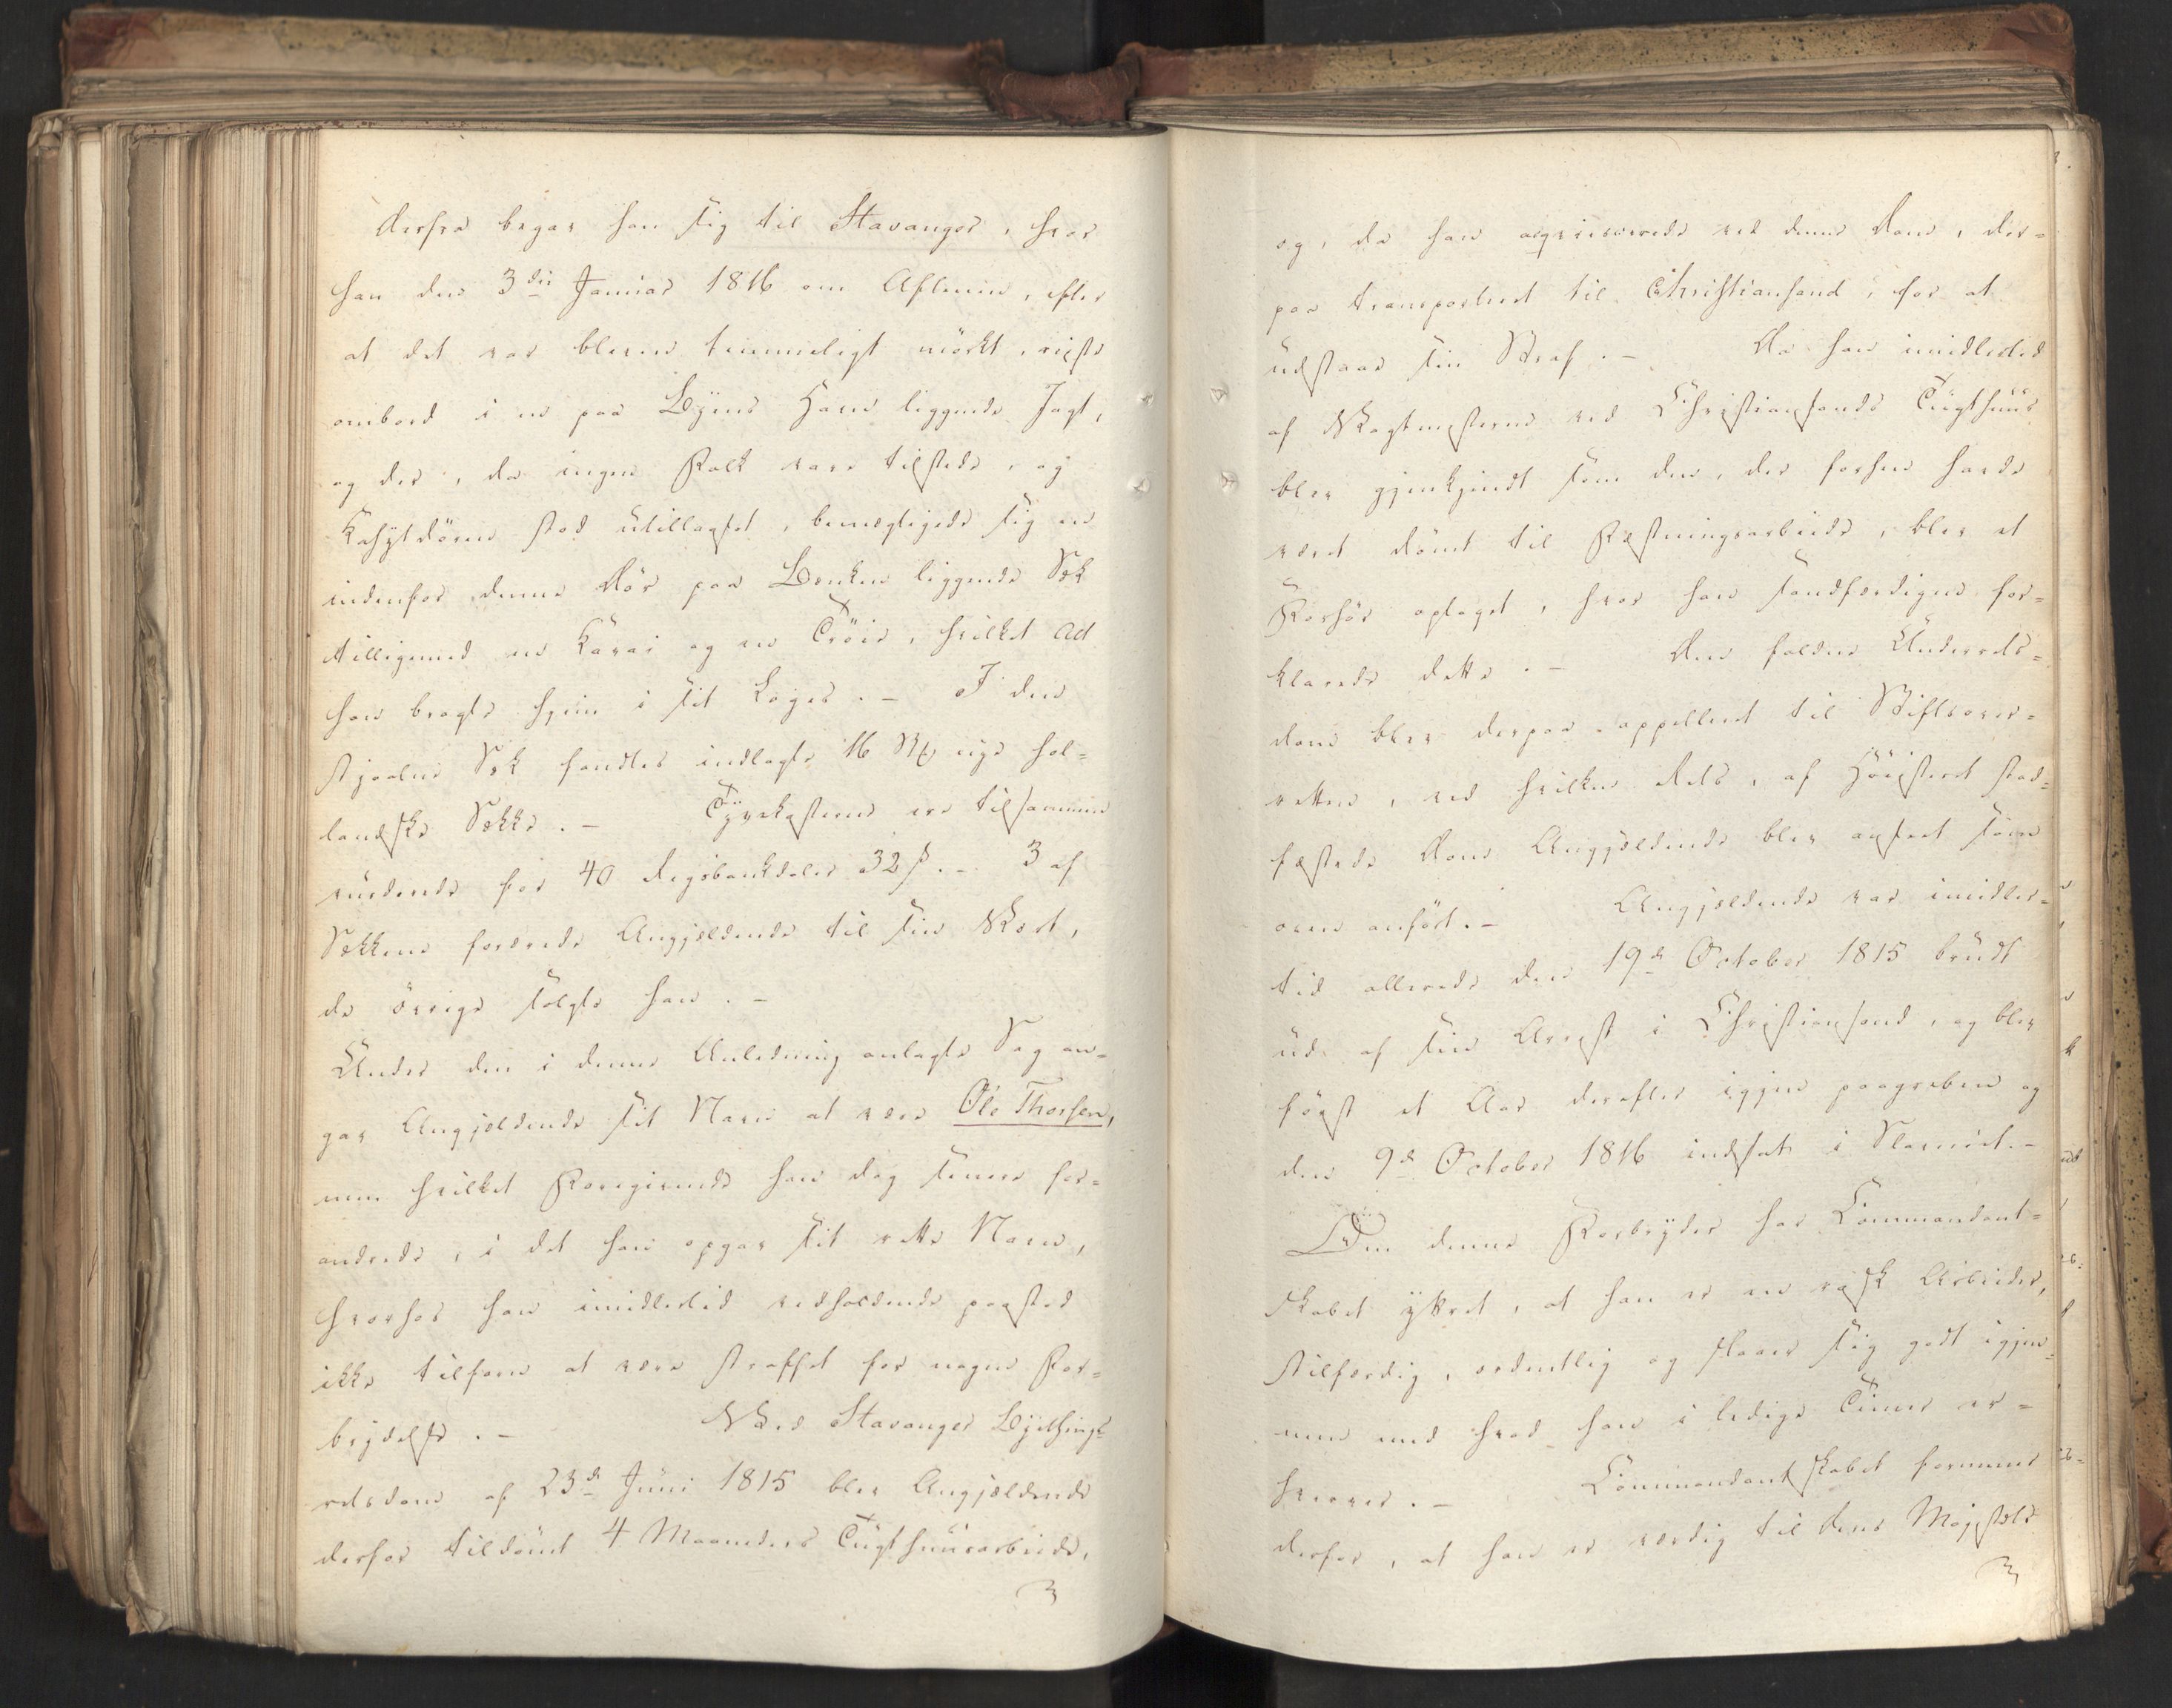 derfra begav han sig til Stavanger, hvor
han den 3die Januar 1816 om Aftenen, efter
at det var bleven temmeligt mörkt, visste
ombord i en paa Byens Havn liggende Jagt,
og der, da ingen Folk vare tilstede, og
Kahytdören stod utillaaset, bemægtigede sig en
indenfor denne Dör paa Bænken liggende Sæk
tilligemed en Kavai og en Tröie, hvilket Alt
han bragte hjem i sit Logis. - I den
stjaalne Sæk fandtes indlagte 16 nye hol=
landske Sække. - Tyvekosterne ere tilsammen
vurderede for 40 Rigsbankdaler 32 s. - 3 af
Sækkene forærede Angjældende til sin Vært,
de övrige solgte han. -
Under den i denne Anledning anlagte Sag an=
gav Angjældende sit Navn at være Ole Thorsen,
men hvilket Foregivende han dog senere for=
andrede, i det han opgav sit rette Navn,
hvorhos han imidlertid vedholdende paastod
ikke tilforn at være straffet for nogen For=
brydelse. - Ved Stavanger Byethings=
retsdom af 23de Juni 1815 blev Angjældende
derfor tildömt 4 Maaneders Tugthuusarbeide,
og, da han acqviescerede ved denne Dom, der=
paa transporteret til Christiansand, for at
udstaae sin Straf. - Da han imidlertid
af Vagtmesteren ved Christiansands Tugthuus
blev gjenkjendt som den, der forhen havde
været dömt til Fæstningsarbeide, blev et
Forhör optaget, hvor han sandfærdigen for=
klarede dette. - Den faldne Underrets=
dom blev derpaa appelleret til Stiftsover=
retten, ved hvilken Rets, af Höiesteret stad=
fæstede Dom Angjældende blev anseet som
oven anfört. - Angjældende var imidler=
tid allerede den 19de October 1815 brudt
ud af sin Arrest i Christiansand, og blev
först et Aar derefter igjen paagreben og
den 9de October 1816 indsat i Slaveriet. -
Om denne Forbryder har Commandant=
skabet yttret, at han er en rask Arbeider,
stilfærdig, ordentlig og slaaer sig godt igjen=
nem med hvad han i ledige Timer er=
hverver. - Commandantskabet formener
derfor, at han er værdig til Deres Majestæts